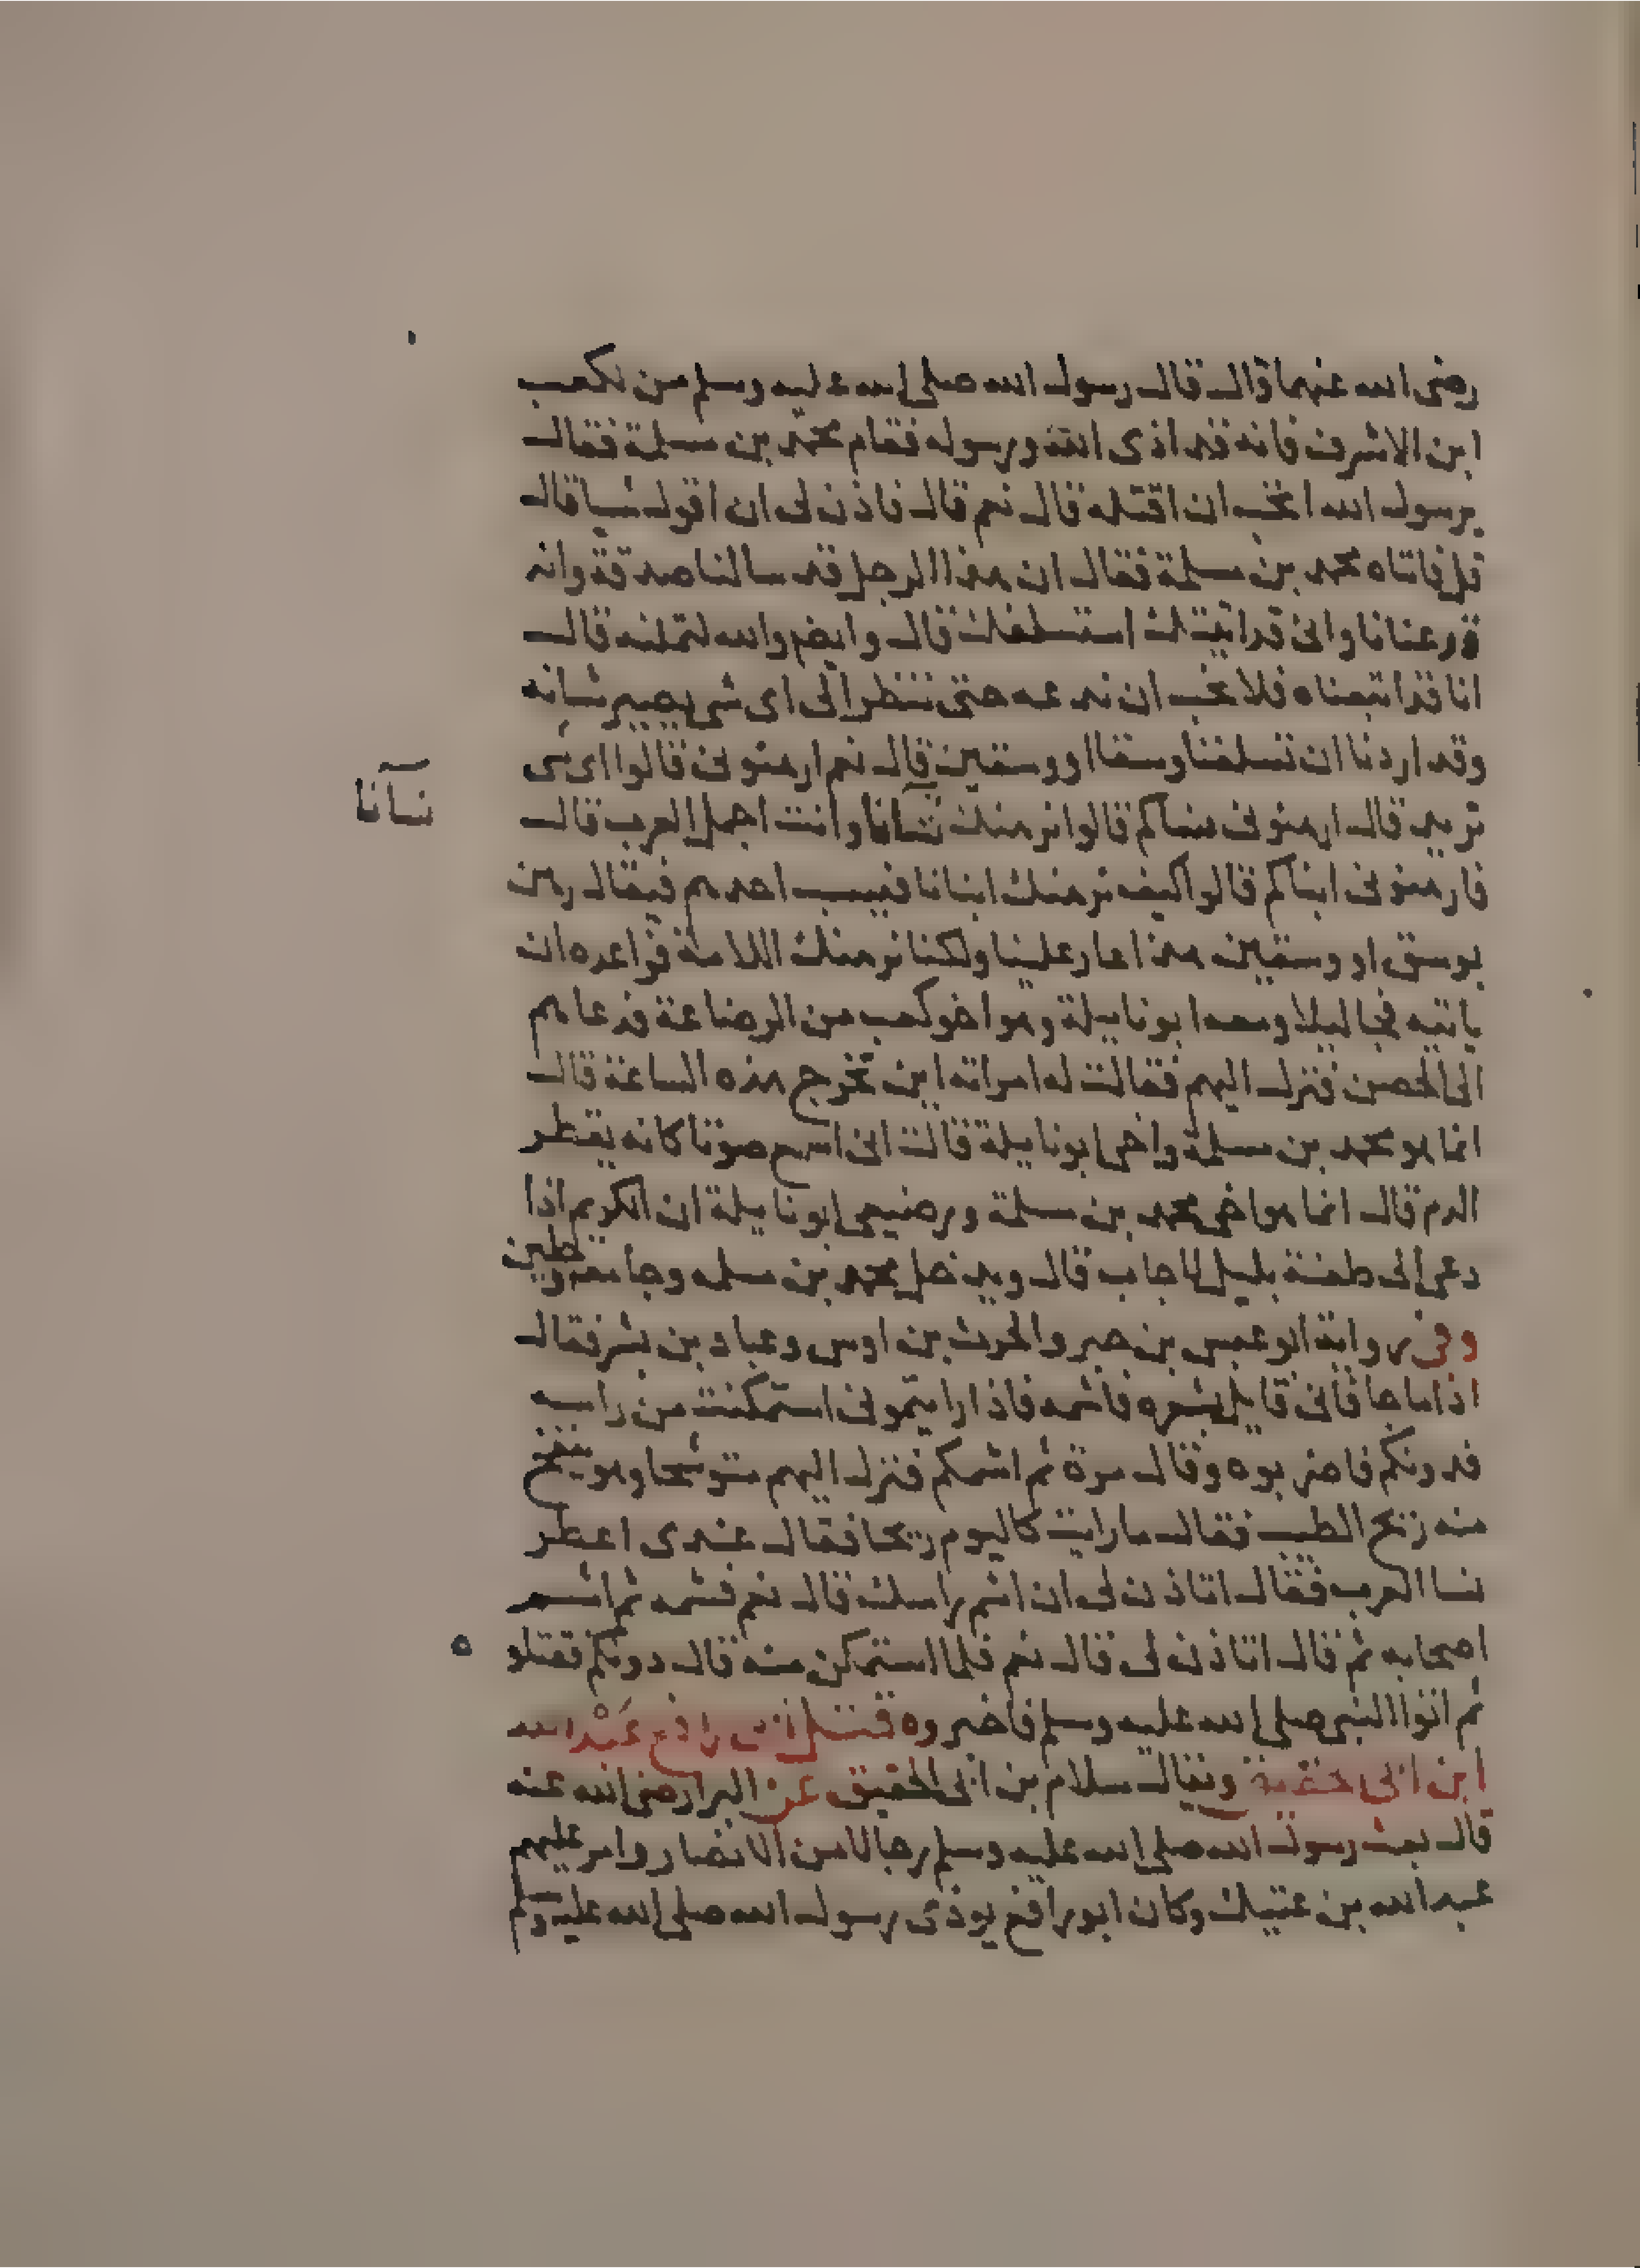 رضى الله عنهما قال قال رسول الله صلى الله عليه وسلم من لكعب
ابن الاشرف فانه قد اذى الله ورسوله فقام محمد بن مسلمة فقال
يرسول الله اتحب ان اقتله قال نعم قال فاذن لى ان اقول شيا قال
قل فاتاه محمد بن مسلمة فقال ان هذا الرجل قد سالنا صدقة وانه
قد عنانا وانى قد اتيتك استسلفك قال وايضا والله لتملنه قال
انا قد اتبعناه فلا نحب ان ندعه حتى ننظر الى اى شى يصير شانه
وقد اردنا ان تسلفنا وسقا او وسقين قال نعم ارهنونى قالوا اى شى
تريد قال ارهنونى نساكم قالوا نرهنك نسانا وانت اجمل العرب قال
نسانا
فارهنونى ابناكم قالوا كيف نرهنك ابنانا فيسب احدهم فيقال رهن
بوسق او وسقين هذا عار علينا ولكنا نرهنك اللامة فواعده ان
ياتيه فجا ليلا ومعه ابو نايلة وهو اخو كعب من الرضاعة فدعاهم
الى الحصن فنزل اليهم فقالت له امراته اين تخرج هذه الساعة قال
انما هو محمد بن مسلمة واخى ابو نايلة قالت انى اسمع صوتا كانه يقطر
الدم قال انما هو اخى محمد بن مسلمة ورضيعى ابو نايلة ان الكريم اذا
دعى الى طعنة بليل لاجاب قال ويدخل محمد بن مسلمه وجا معه رجلين
وفى رواية ابو عبس بن جبر والحرث بن اوس وعباد بن بشر فقال
اذا ما جا فانى قايل بشعره فاشمه فاذا رايتمونى استمكنت من راسه
فدونكم فاضربوه وقال مرة ثم اشمكم فنزل اليهم متوشحا وهو ينفخ
منه ريح الطيب فقال ما رايت كاليوم ريحا فقال عندى اعطر
نسا العرب فقال اتاذن لى ان اشم راسك قال نعم فشمه ثم اشم
اصحابه ثم قال اتاذن لى قال نعم فلما استمكن منه قال دونكم فقتلوه
ثم اتوا النبى صلى الله عليه وسلم فاخبروه قتل ابى رافع عبد الله
ابن ابى الحقيق ويقال سلام بن ابى الحقيق عن البرا رضى الله عنه
قال بعث رسول الله صلى الله عليه وسلم رجالا من الانصار وامر عليهم
عبد الله بن عتيك وكان ابو رافع يوذى رسول الله صلى الله عليه وسلم